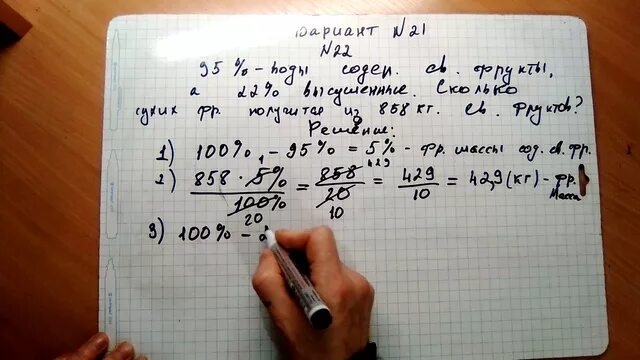 Вариант N21
N22
95%-воды содер. св. фрукты,
а 22% высушенные. Сколько
сухих фр. получится из 858 кг. св. фруктов?
Решение:
1) 100% - 95% = 5% - фр. массы сод. св. фр.
2) 858 · 5% / 100% 20 = 858 429 / 20 10 = 429 / 10 = 42,9 (кг) - фр. масса
3) 100% -